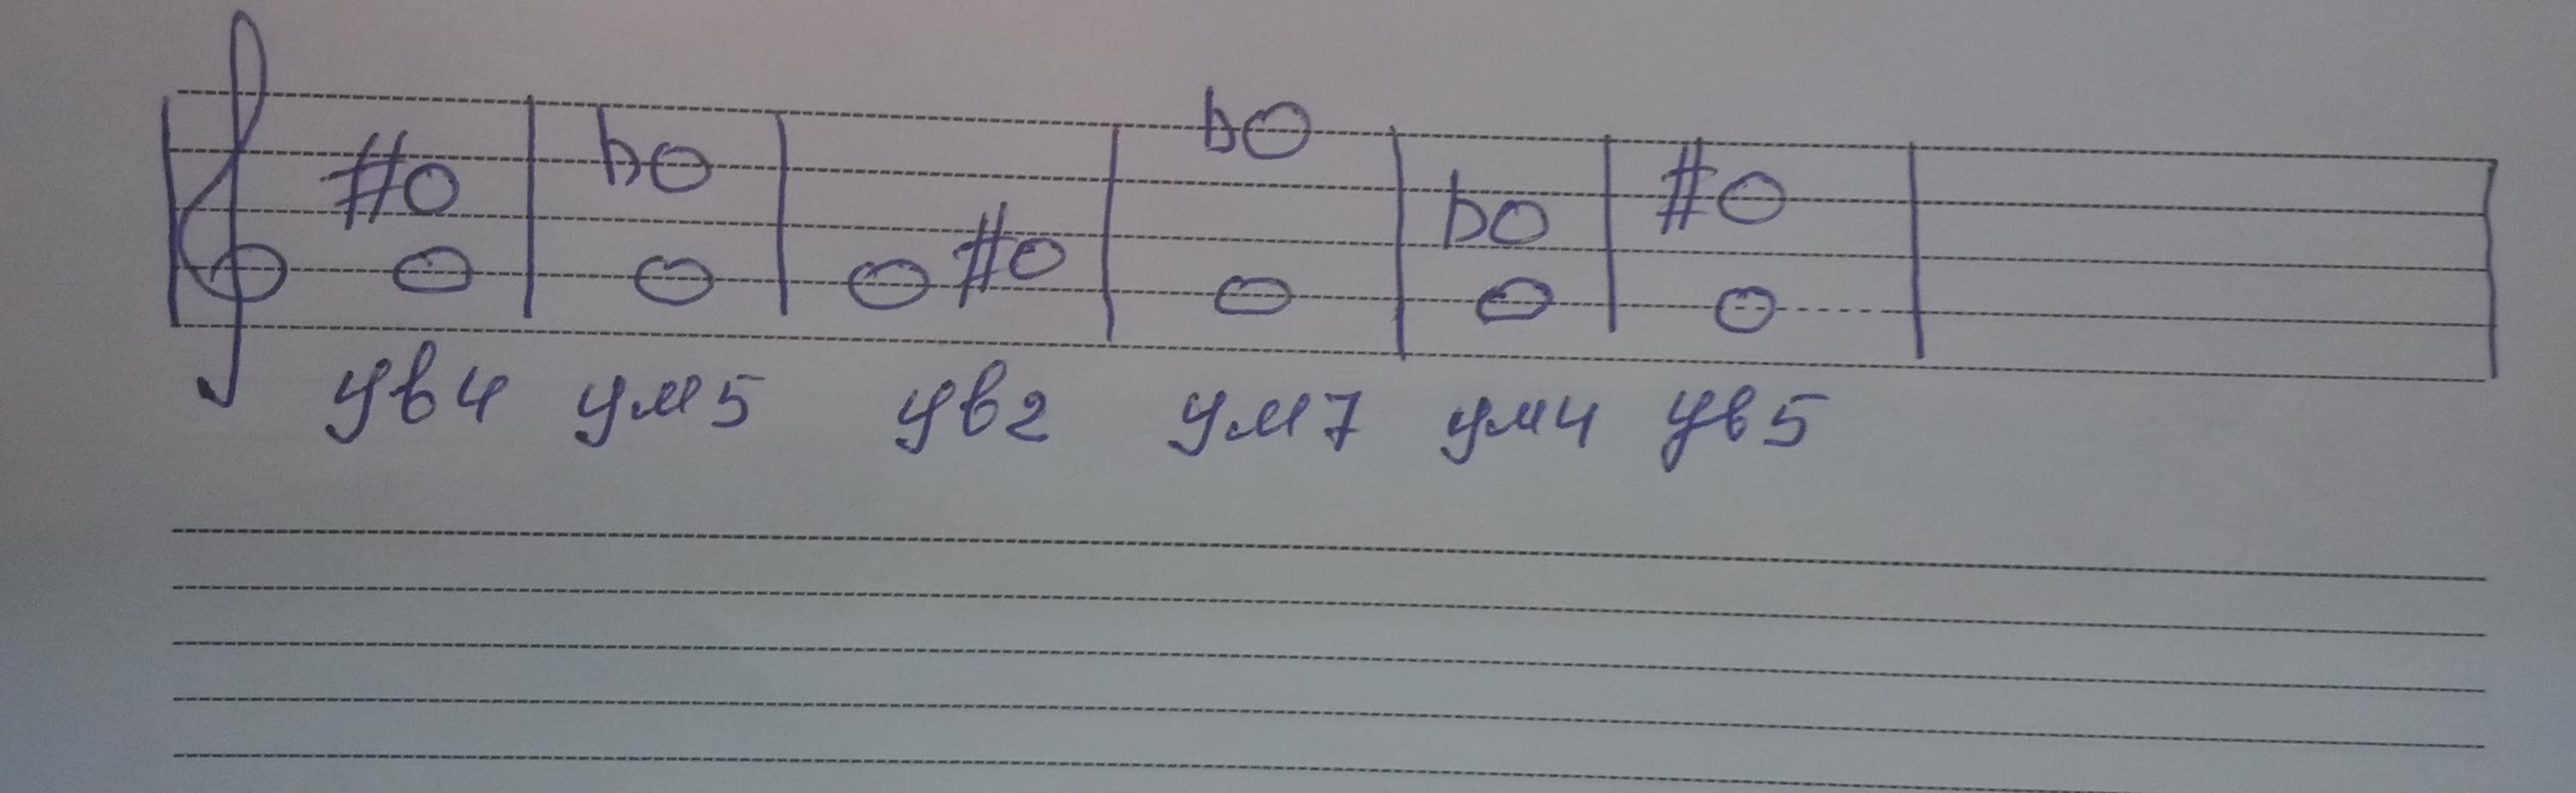 ув4 ум5 ув2 ум7 ум4 ув5